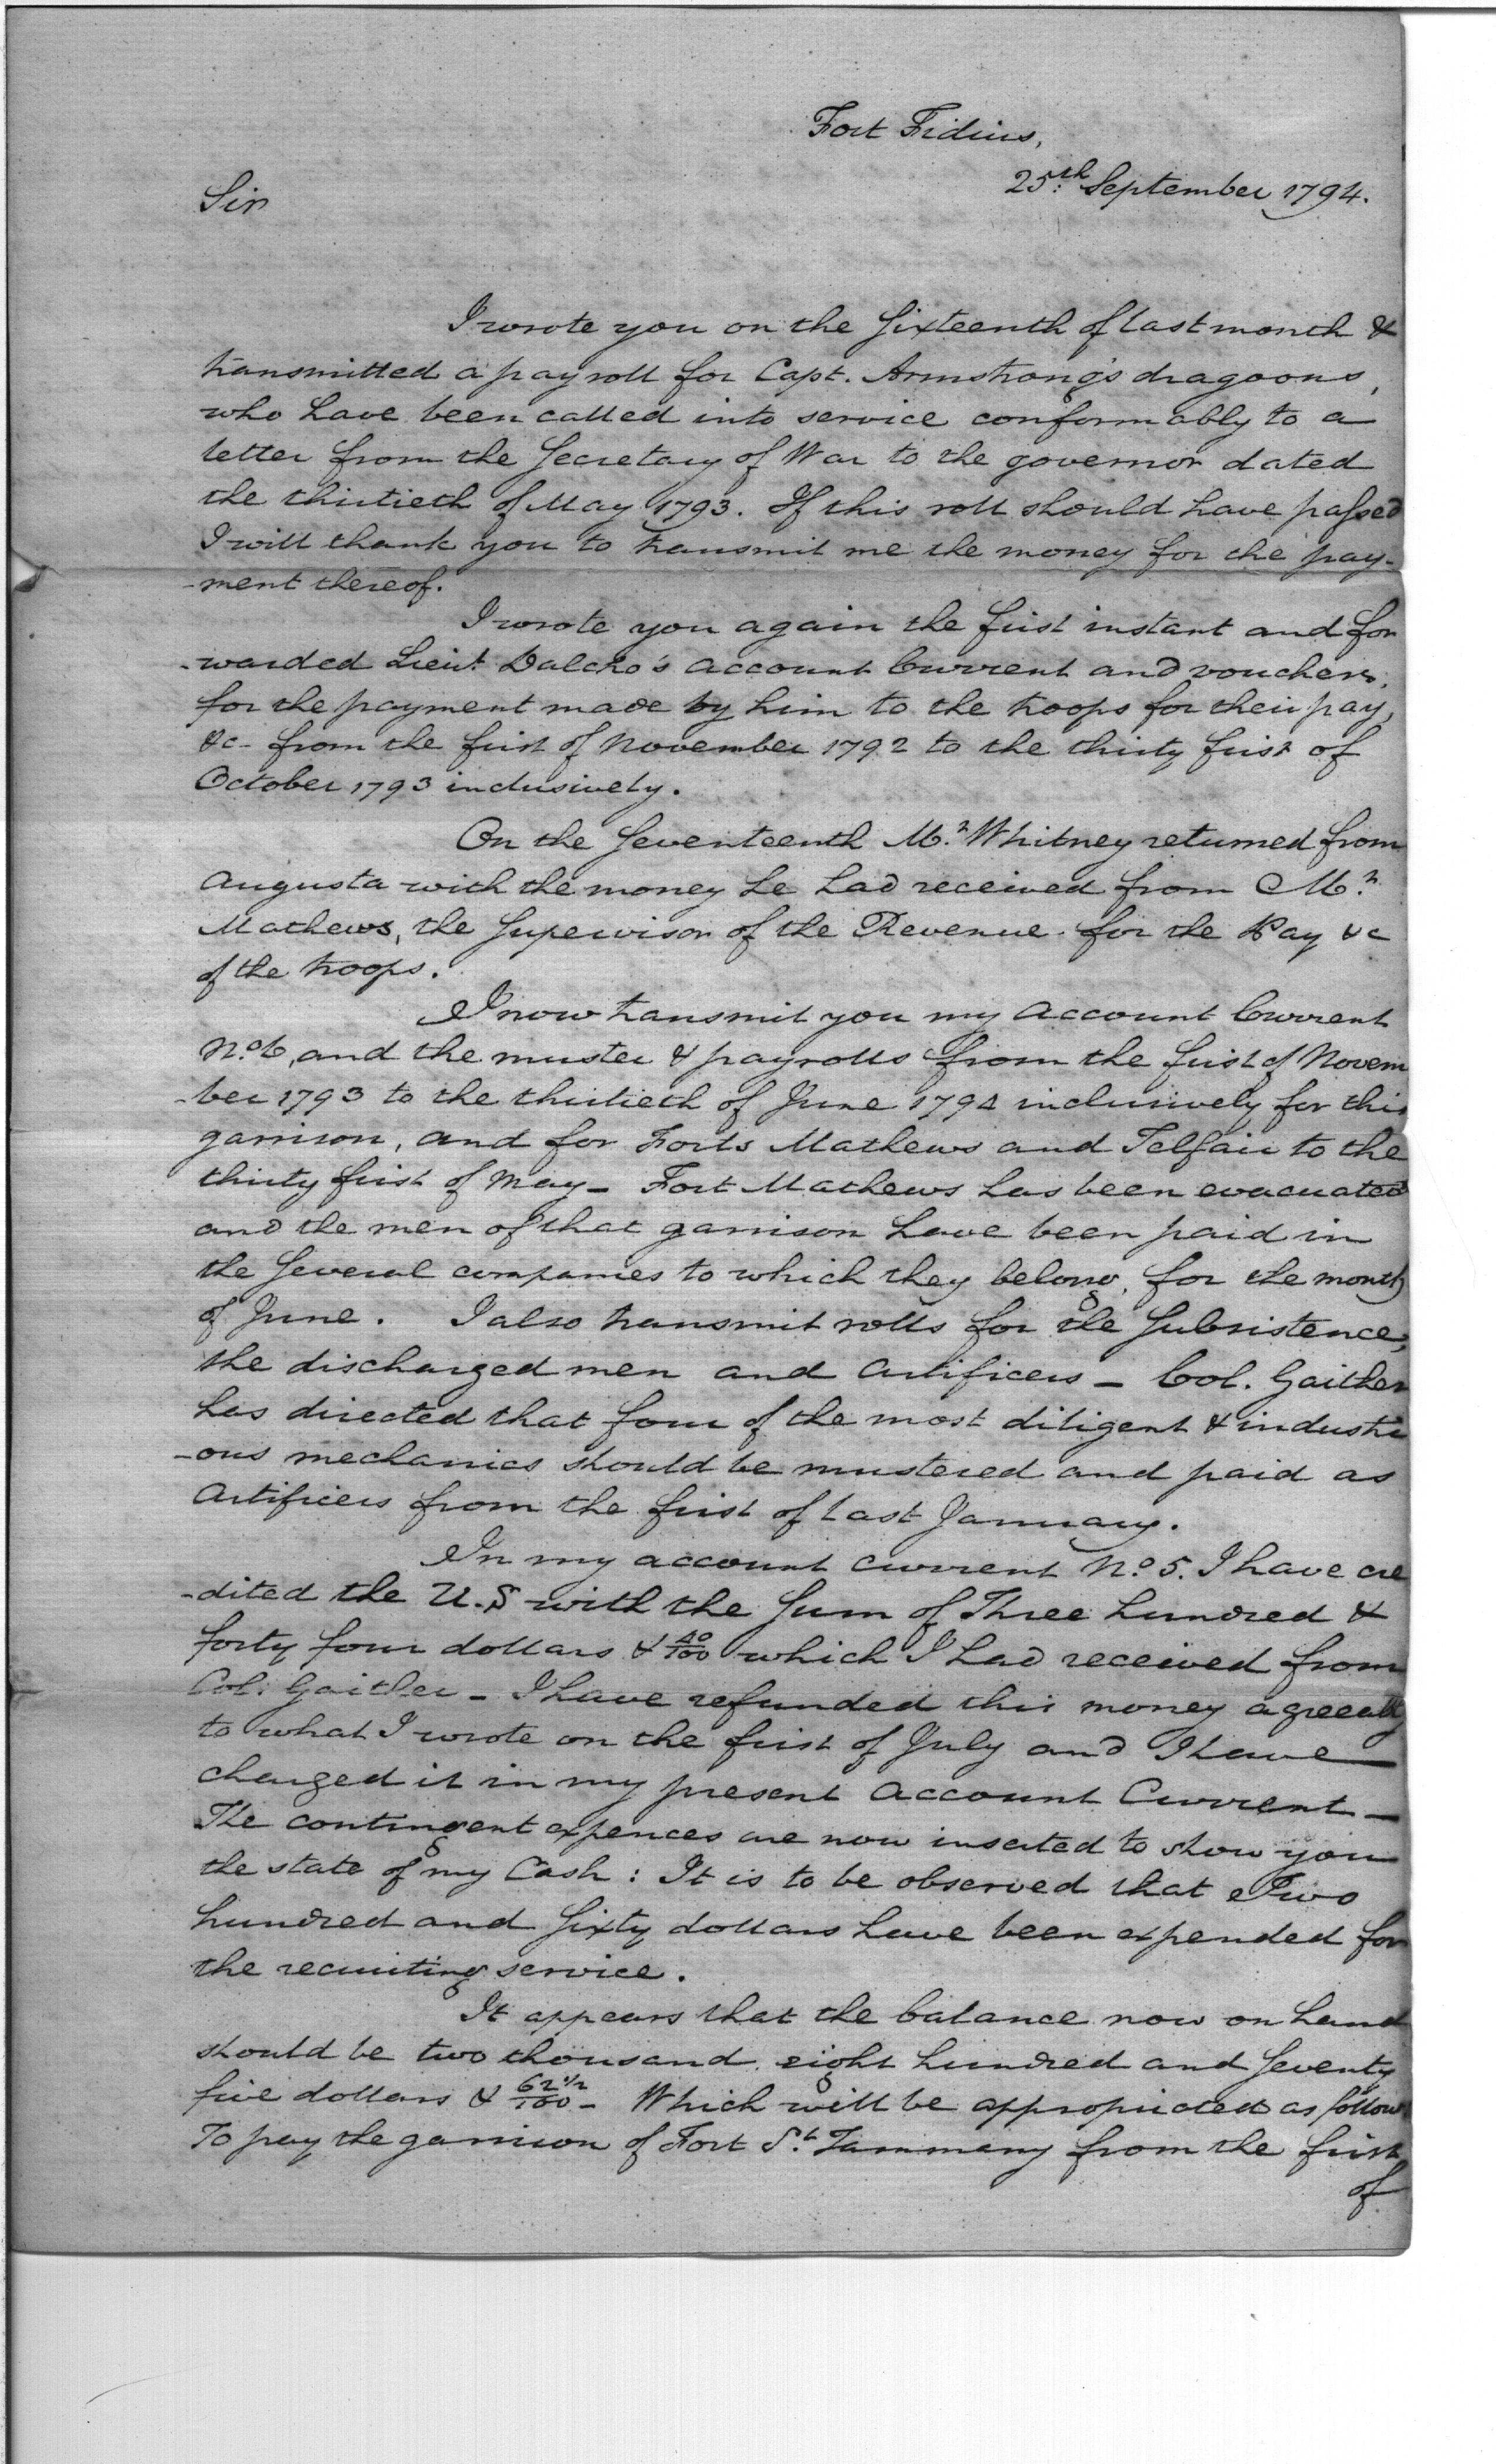 Fort Fidius,
25th September 1794.
Sir
I wrote you on the Sixteenth of last month &
transmitted a pay roll for Capt. Armstrong's dragoons,
who have been called into service conformably to a
letter from the Secretary of War to the governor dated
the thirtieth of May 1793. If this roll should have passed
I will thank you to transmit me the money for the pay-
-ment thereof.
I wrote you again the first instant and for
-warded Lieut Dalcho's account Current and vouchers,
for the payment made by him to the troops for their pay,
&c- from the first of November 1792 to the thirty first of
October 1793 inclusively.
On the Seventeenth Mr. Whitney returned from
Augusta with the money he had received from Mr.
Mathews, the Supervisor of the Revenue for the Pay &c
of the troops.
I now transmit you my Account Current
No. 6, and the muster & payrolls from the first of Novem
-ber 1793 to the thirtieth of June 1794 inclusively for this
garrison, and for Forts Mathews and Telfair to the
thirty first of May - Fort Mathews has been evacuated
and the men of that garrison have been paid in
the Several companies to which they belong, for the month
of June. I also transmit rolls for the Subsistence,
the discharged men and Artificers - Col. Gaither
has directed that four of the most diligent & industri
-ous mechanics should be mustered and paid as
Artificers from the first of last January.
In my account current No. 5. I have cre
-dited the U.S with the Sum of Three hundred &
forty four dollars & 40/100 which I had received from
Col: Gaither - I have refunded this money agreeably
to what I wrote on the first of July and I have
charged it in my present Account Current -
The contingent expences are now inserted to show you
the state of my Cash: It is to be observed that Two
hundred and Sixty dollars have been expended for
the recruiting service.
It appears that the balance now on hand
should be two thousand eight hundred and Seventy
five dollars & 62 1/2/100 - Which will be appropriated as follows
To pay the garrison of Fort St. Tammany from the first
of